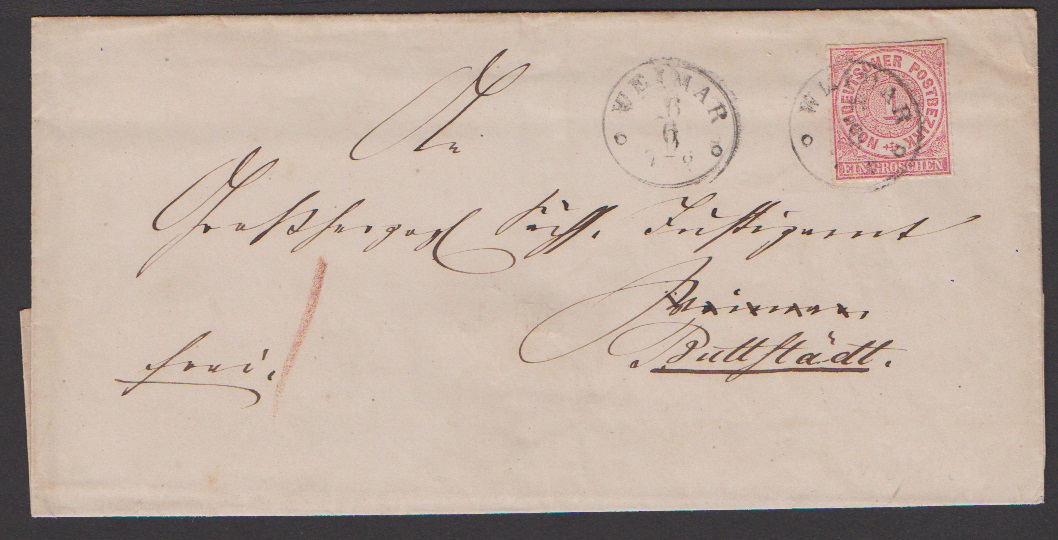 WEIMAR
6
6
7-8
WEIMAR
NORDDEUTSCHER POSTBEZIRK
1
EIN GROSCHEN
An
Großherzogl. Sächs. Justizamt
Weimar,
Buttstädt.
frei.